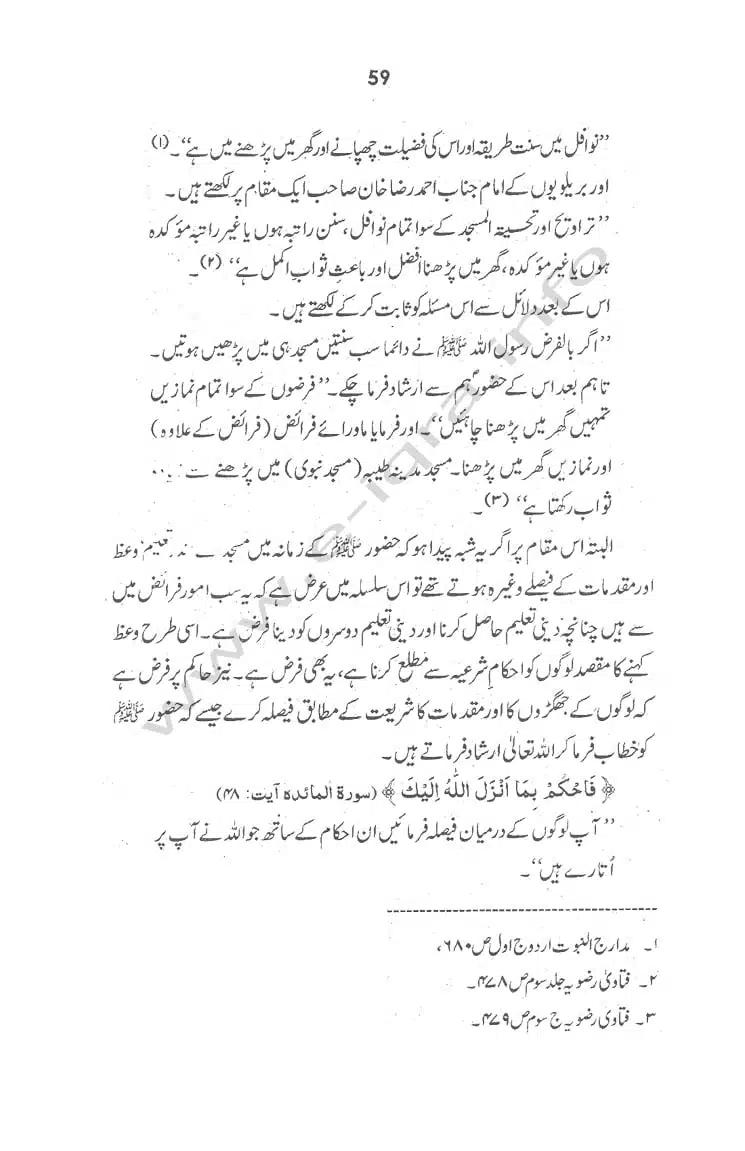 59
’’نوافل میں سنت طریقہ اور اس کی فضیلت چھپانے اور گھر میں پڑھنے میں ہے‘‘۔ (۱)
اور بریلویوں کے امام جناب احمد رضا خان صاحب ایک مقام پر لکھتے ہیں ۔
’’تراویح اور تحسیتہ المسجد کے سوا تمام نوافل، سنن راتبہ ہوں یا غیر راتبہ مؤکدہ
ہوں یا غیر مؤکدہ، گھر میں پڑھنا افضل اور باعثِ ثوابِ اکمل ہے‘‘ (۲)۔
اس کے بعد دلائل سے اس مسئلہ کو ثابت کر کے لکھتے ہیں ۔
’’اگر بالفرض رسول اللہ ﷺ نے دائما سب سنتیں مسجد ہی میں پڑھیں ہوتیں۔
تاہم بعد اس کے حضور ہم سے ارشاد فرما چکے۔ ’’فرضوں کے سوا تمام نمازیں
تمہیں گھر میں پڑھنا چاہئیں‘‘۔ اور فرمایا ماورائے فرائض (فرائض کے علاوہ)
اور نمازیں گھر میں پڑھنا۔ مسجد مدینہ طیبہ (مسجد نبوی) میں پڑھنے
ثواب رکھتا ہے‘‘ (۳)۔
البتہ اس مقام پر اگر یہ شبہ پیدا ہو کہ حضور ﷺ کے زمانہ میں مسجد تعلیم وعظ
اور مقدمات کے فیصلے وغیرہ ہوتے تھے تو اس سلسلہ میں عرض ہے کہ یہ سب امور فرائض میں
سے ہیں چنانچہ دینی تعلیم حاصل کرنا اور دینی تعلیم دوسروں کو دینا فرض ہے۔ اسی طرح وعظ
کہنے کا مقصد لوگوں کو احکام شرعیہ سے مطلع کرنا ہے، یہ بھی فرض ہے۔ نیز حاکم پر فرض ہے
کہ لوگوں کے جھگڑوں کا اور مقدمات کا شریعت کے مطابق فیصلہ کرے جیسے کہ حضور ﷺ
کو خطاب فرما کر اللہ تعالیٰ ارشاد فرماتے ہیں۔
﴿ فَاحْكُمْ بِمَا اَنْزَلَ اللّٰهُ اِلَيْكَ ﴾ (سورة المائدہ آیت: ۴۸)
’’آپ لوگوں کے درمیان فیصلہ فرمائیں ان احکام کے ساتھ جو اللہ نے آپ پر
اُتارے ہیں‘‘۔
۱۔ مدارج النبوت اردو ج اول ص ۶۸۰،
۲۔ فتاویٰ رضویہ جلد سوم ص ۴۷۸۔
۳۔ فتاویٰ رضویہ ج سوم ص ۴۷۹۔
www.e-iqra.info